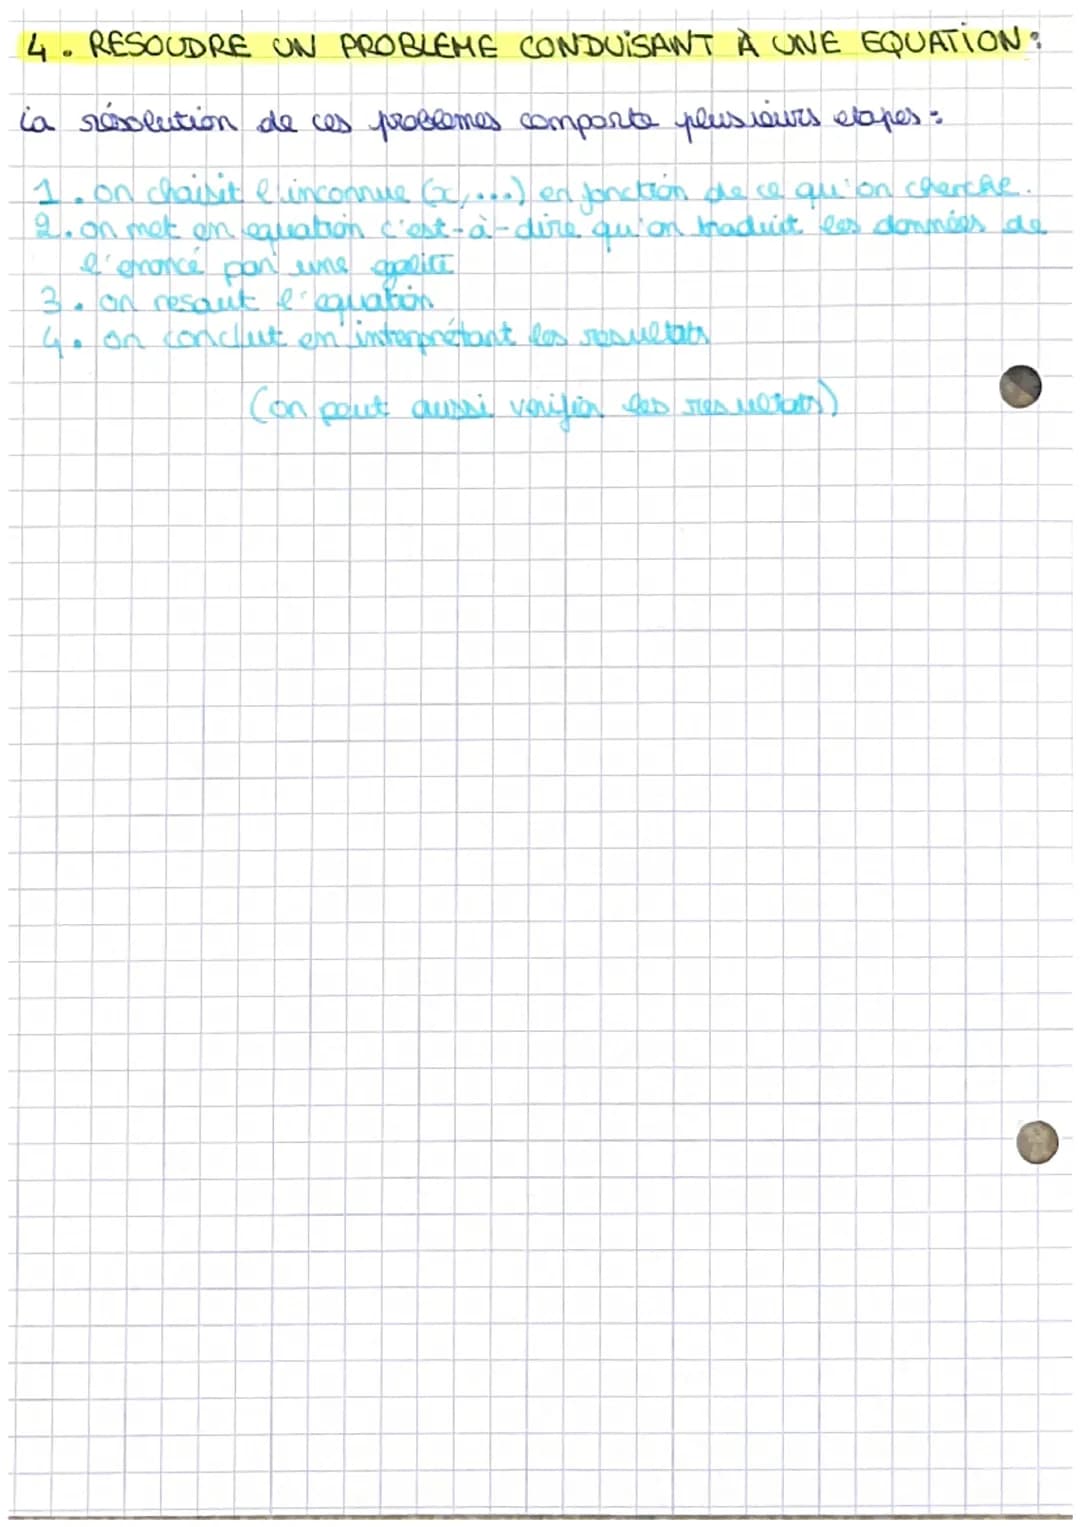 4. RESOUDRE UN PROBLEME CONDUiSANT À UNE EQUATiON :
la résolution de ces problemes comporte plusieurs etapes :
1. on choisit l'inconnue (x,...) en fonction de ce qu'on cherche.
2. on met en equation c'est-à-dire qu'on traduit les données de
l'enoncé par une egalité
3. on resout l'equation
4. on conclut en interprétant les resultats
(on peut aussi verifier les resultats)